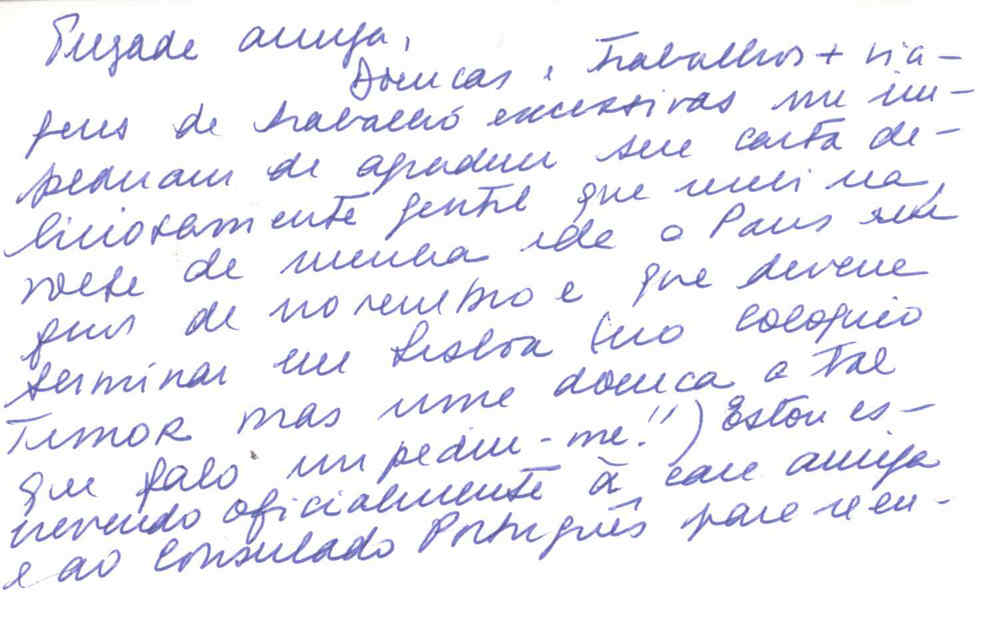 Prezada amiga,
Doenças e trabalhos + via-
gens de trabalho excessivas me im-
pediram de agradecer sua carta de-
liciosamente gentil que recebi na
volta de minha ida a Paris em
de novembro e que deveria
terminar em Lisboa (no colóquio
TIMOR mas uma doença a tal
que falo impediu-me!!) Estou es-
crevendo oficialmente à cara amiga
e ao Consulado Português para reen-